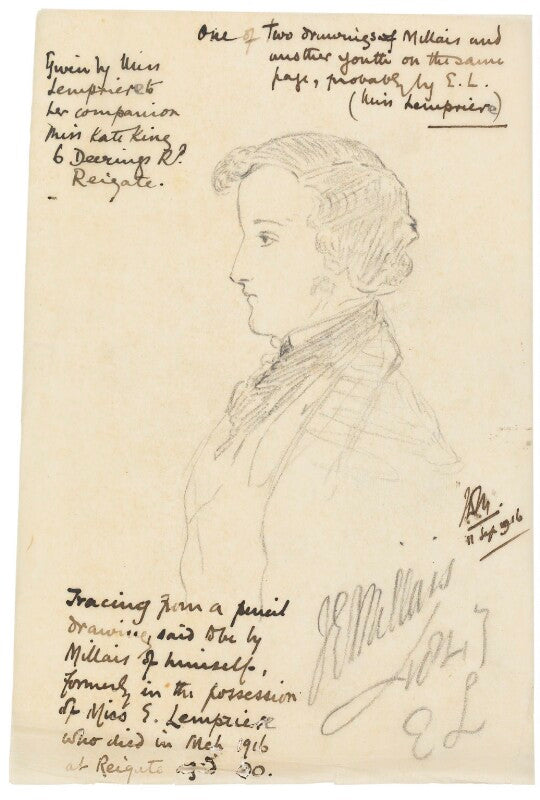 One of two drawings of Millais and
another youth on the same
page, probably by E. L.
(Miss Lempriere)
Given by Miss
Lempriere to
her companion
Miss Kate King
6 Deerings Rd.
Reigate.
11 Sep 1916
Tracing from a pencil
drawing, said to be by
Millais of himself,
formerly in the possession
of Miss E. Lempriere
who died in Mch 1916
at Reigate aged 90.
JEMillais
1843
EL